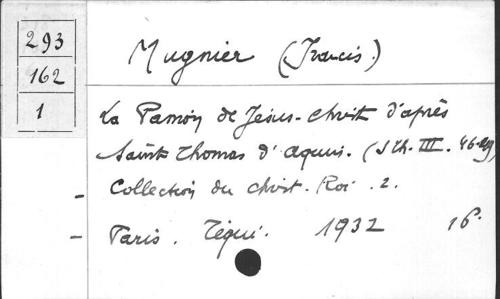 293
162
1
Mugnier (Francis.)
La Passion de Jésus-Christ d'après
Saint Thomas d'Aquin. (S Th. III. 46-49)
Collection du Christ-Roi. 2.
Paris. Téqui. 1932 16º.